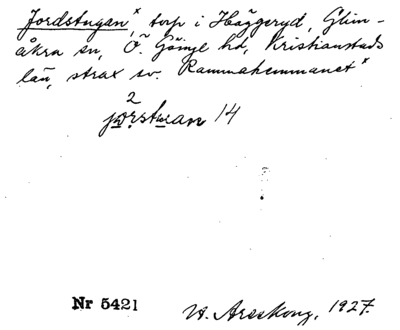 Jordstugan,ˣ torp i Häggeryd, Glim-
åkra sn, Ö. Göinge hd, Kristianstads
län, strax sv. Rammahemmanetˣ
2
jorstuan 14
Nr 5421
W. Areskoug, 1927.